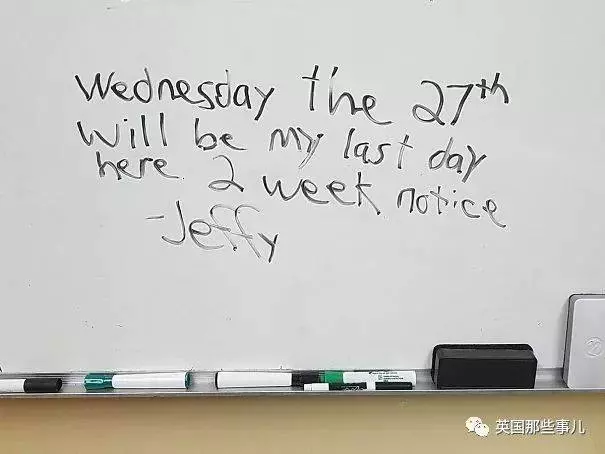 Wednesday the 27th
will be my last day
here 2 week notice
-Jeffy
英国那些事儿